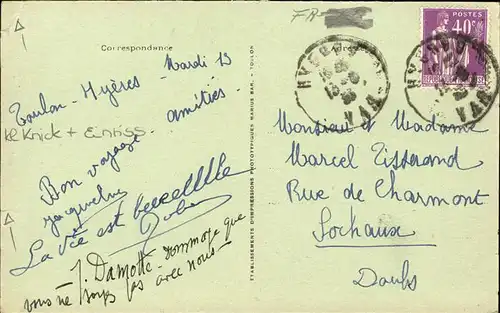 FR
POSTES
40c
Correspondance
Adresse
HYERES
VAR
Mardi 13
Toulon-Hyères
amitiés
kl Knick + Einriss
Bon voyage
La vie est belle
J. Damotte - dommage que
vous ne soyez pas avec nous -
ETABLISSEMENTS D'IMPRESSIONS PHOTOTYPIQUES MARIUS BAR. - TOULON
Monsieur et Madame
Marcel Tisserand
Rue de Charmont
Sochaux
Doubs